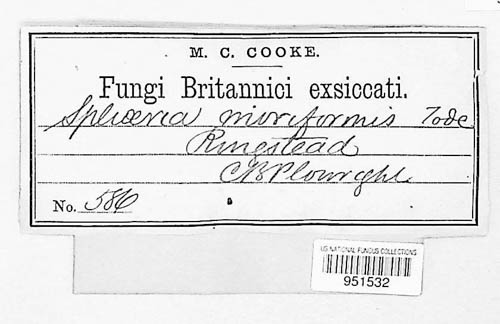 M. C. COOKE.
Fungi Britannici exsiccati.
Sphæria moriformis Tode
Ringstead
CB Plowright
No. 586
US NATIONAL FUNGUS COLLECTIONS
951532